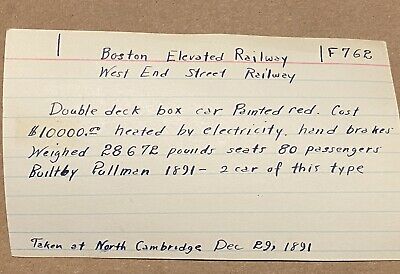 Boston Elevated Railway F762
West End Street Railway
Double deck box car Painted red. Cost
$10000.00 heated by electricity. hand brakes
Weighed 28672 pounds seats 80 passengers
Built by Pullman 1891- 2 car of this type
Taken at North Cambridge Dec 29, 1891